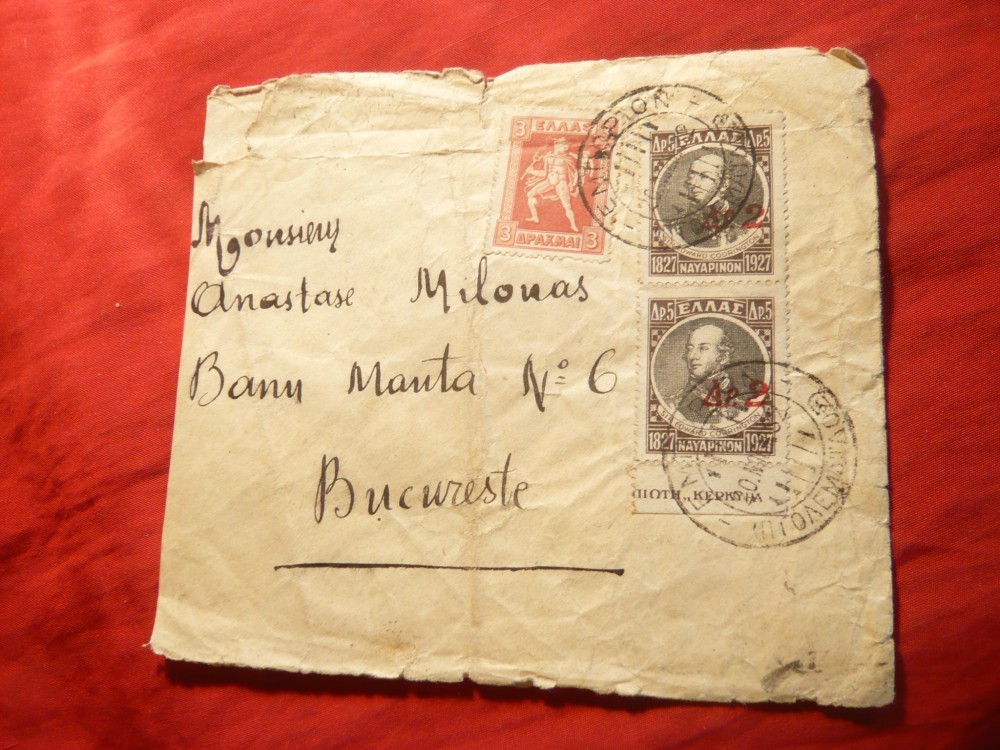 3 ΕΛΛΑΣ
3 ΔΡΑΧΜΑΙ 3
Δρ.5 ΕΛΛΑΣ Δρ.5
Δρ. 2
SIR EDWARD CODRINGTON
1827 ΝΑΥΑΡΙΝΟΝ 1927
Δρ.5 ΕΛΛΑΣ Δρ.5
Δρ. 2
SIR EDWARD CODRINGTON
1827 ΝΑΥΑΡΙΝΟΝ 1927
ΠΙΩΤΗ„ ΚΕΡΚΥΡΑ
Monsieur
Anastase Milonas
Banu Manta Nº 6
Bucureste